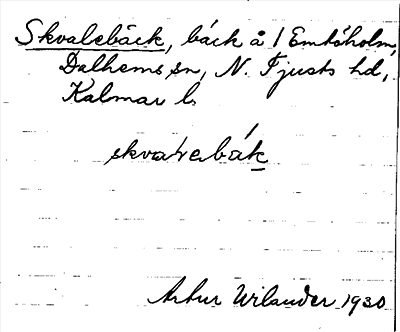 Skvalebäck, bäck å 1 Emtöholm,
Dalhems sn, N. Tjusts hd,
Kalmar l.
skvalebäk
Artur Wilander 1930